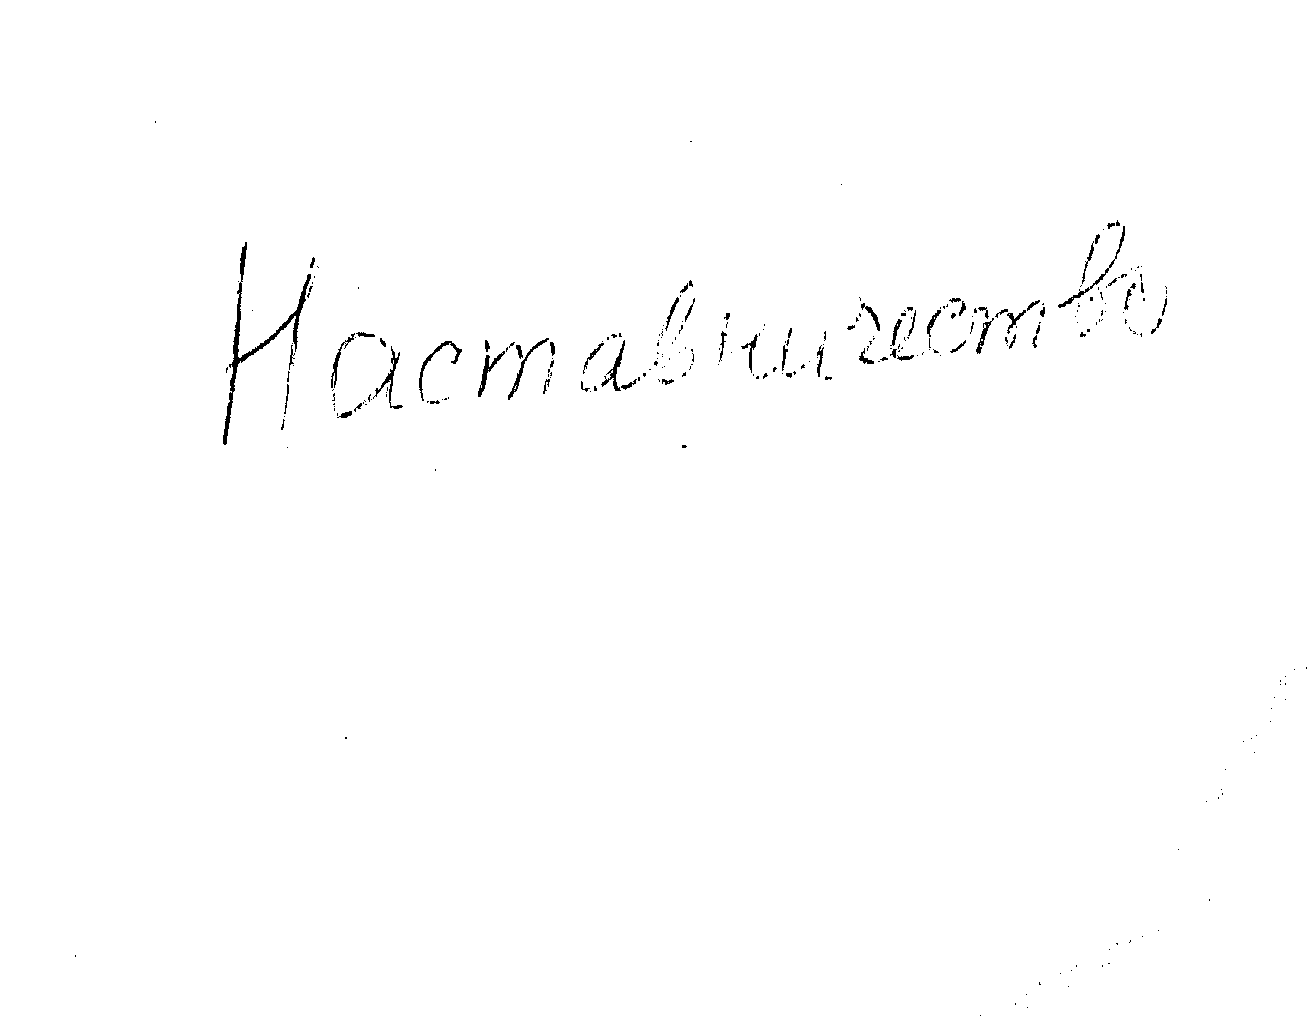 Наставничество